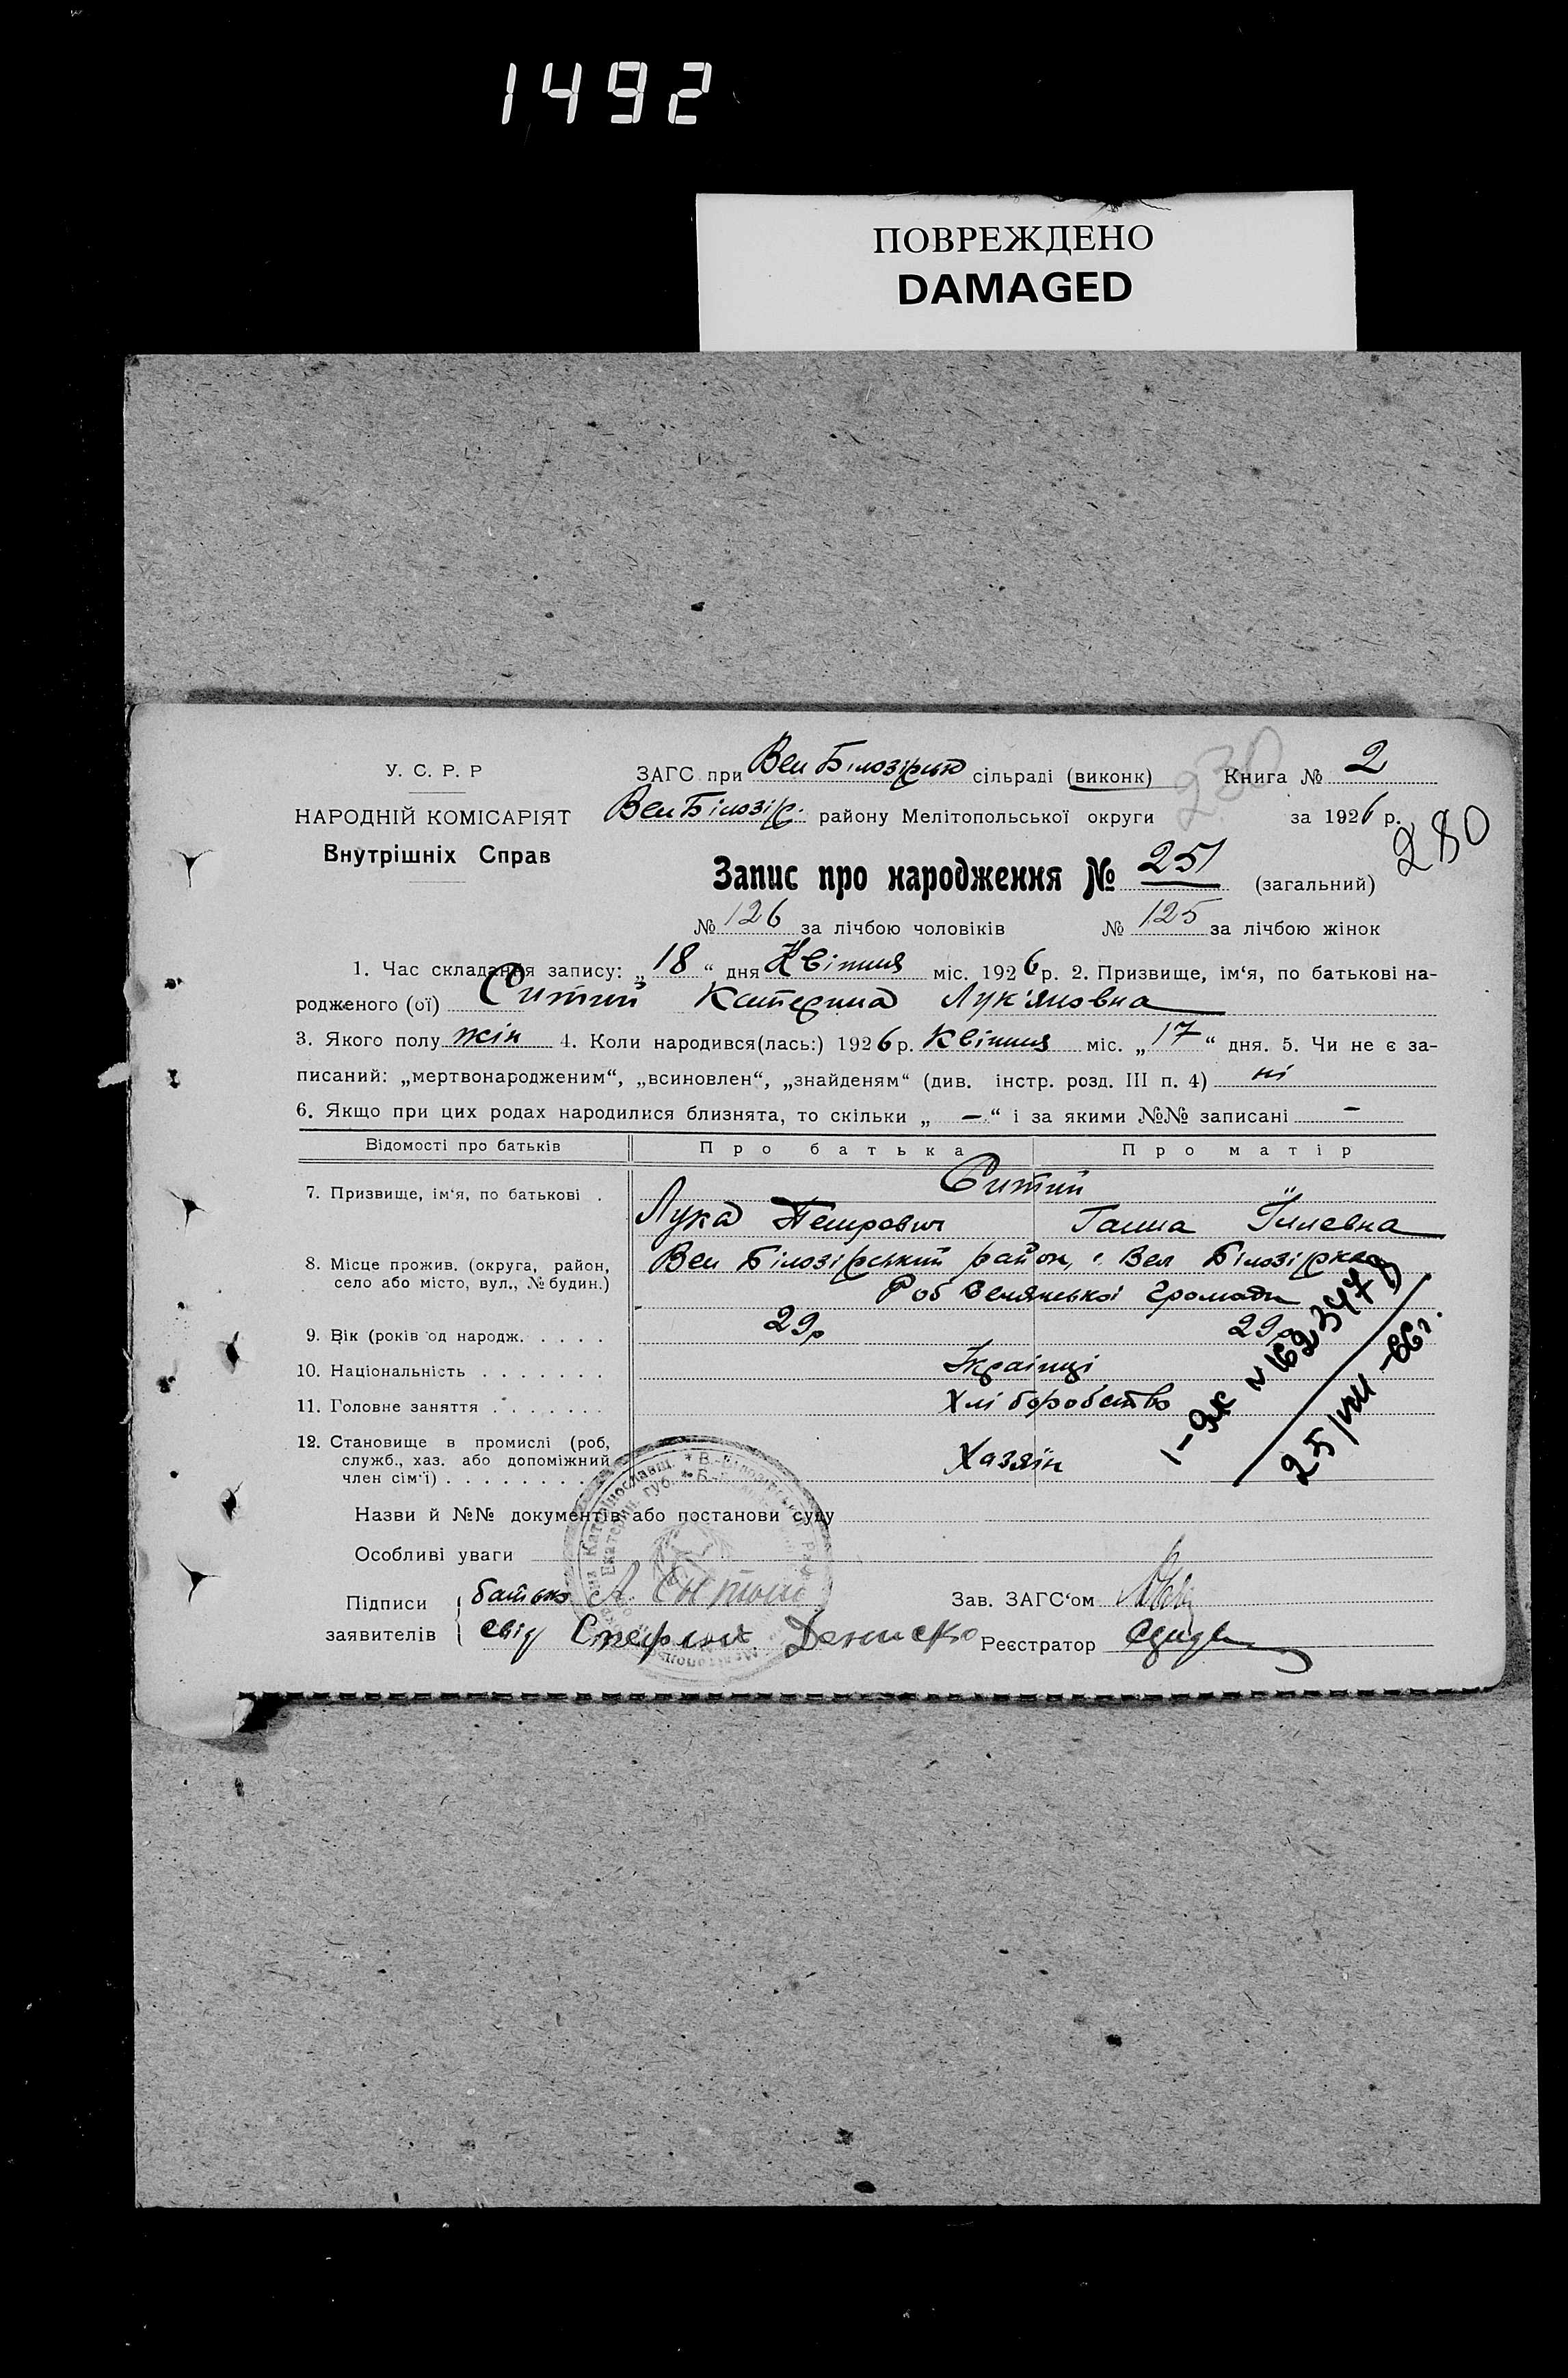 1492
ПОВРЕЖДЕНО
DAMAGED
У. С. Р. Р
НАРОДНІЙ КОМІСАРІЯТ
Внутрішніх Справ
230
ЗАГС при Вел Білозірськ сільраді (виконк) Книга № 2
Вел Білозір. району Мелітопольської округи за 1926 р.
280
Запис про народження № 251 (загальний)
№ 126 за лічбою чоловіків № 125 за лічбою жінок
1. Час складання запису: „18“ дня Квітня міс. 1926 р. 2. Призвище, ім‘я, по батькові на-
родженого (ої) Ситий Катерина Лук'яновна
3. Якого полу жін 4. Коли народився(лась:) 1926 р. Квітня міс. „17“ дня. 5. Чи не є за-
писаний: „мертвонародженим“, „всиновлен“, „знайденям“ (див. інстр. розд. III п. 4) ні
6. Якщо при цих родах народилися близнята, то скільки „ — “ і за якими №№ записані —
Відомості про батьків Про батька Про матір
7. Призвище, ім‘я, по батькові . Ситий "
Лука Петрович Ганна Іллевна
8. Місце прожив. (округа, район, село або місто, вул., № будин.) Вел Білозірський район, с. Вел Білозірка
Роб Землянської Громади
9. Вік (років од народж. . . . . 29р 29р
10. Національність . . . . . . . Українці
11. Головне заняття . . . . . . . Хліборобство
12. Становище в промислі (роб, служб., хаз. або допоміжний член сім‘ї) . . . . . . . . . Хазяїн
1-ЯЖ № 162347
25/VIII-66г.
Назви й №№ документів або постанови суду
Особливі уваги
Підписи заявителів батько Л. Сытый Зав. ЗАГС‘ом
свід Стефан Дениско Реєстратор